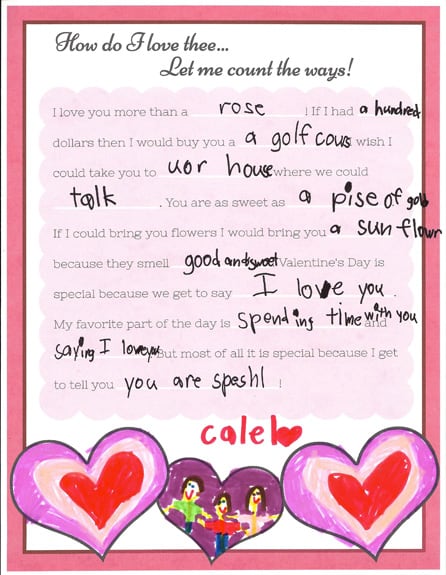 How do I love thee...
Let me count the ways!
I love you more than a rose ! If I had a hundred
dollars then I would buy you a a golf cours wish I
could take you to uor house where we could
talk . You are as sweet as a pise of gold
If I could bring you flowers I would bring you a sun flowr
because they smell good and sweet Valentine's Day is
special because we get to say I love you .
My favorite part of the day is spending time with you and
saying I love you But most of all it is special because I get
to tell you you are speshl !
caleb